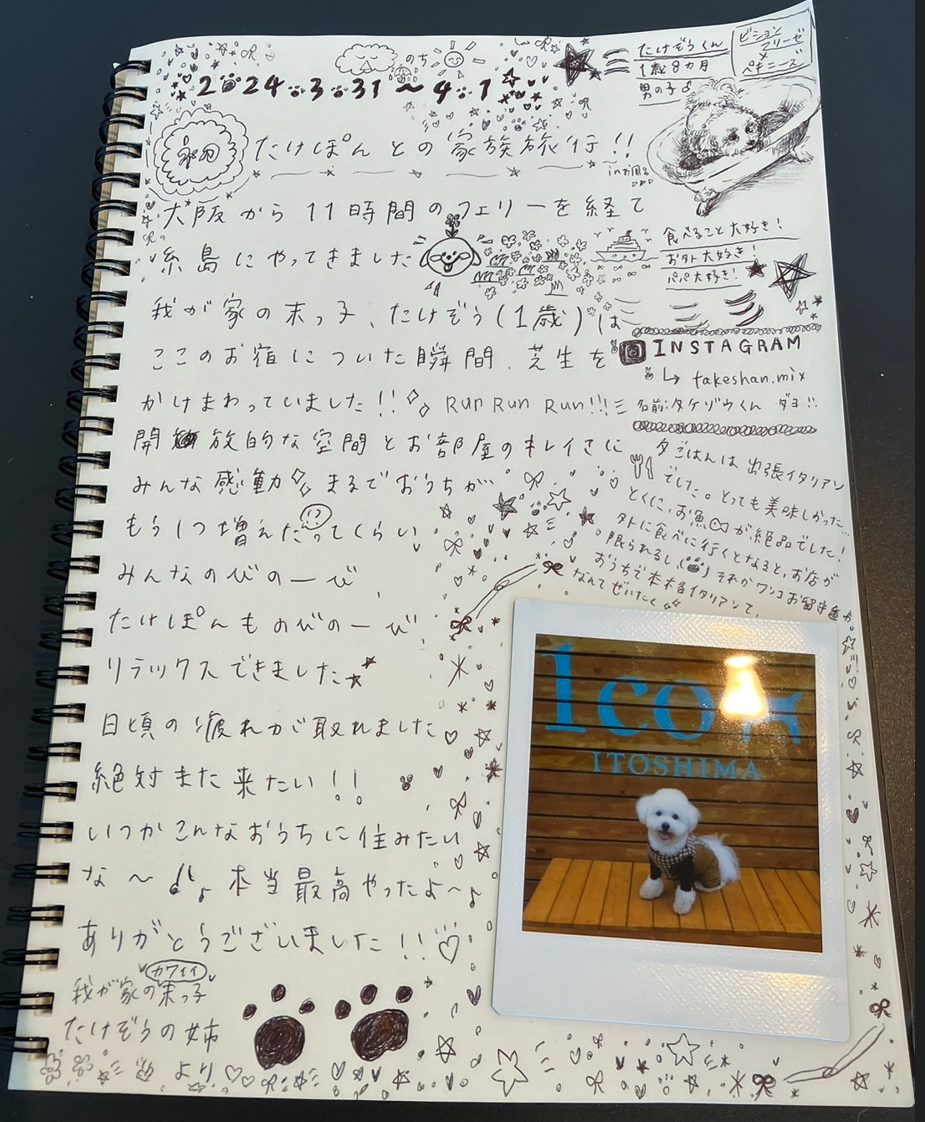 のち
2024.3.31〜4.1
たけぞうくん
1歳8ヵ月
男の子♂
ビション
フリーゼ
×
ペキニーズ
in お風呂
たけぽんとの家族旅行!!
大阪から11時間のフェリーを経て
糸島にやってきました
食べること大好き!
お外大好き!
パパ大好き!
我が家の末っ子、たけぞう(1歳)は
ここのお宿についた瞬間、芝生を
かけまわっていました!! Run Run Run!!!
INSTAGRAM
↳ takeshan.mix
名前:タケゾウくん ダヨ!!
開放的な空間とお部屋のキレイさに
みんな感動 まるでおうちが
もう1つ増えたってくらい
みんなのびのーび
たけぽんものびのーび
リラックスできました★
日頃の疲れが取れました
絶対また来たい!!
いつかこんなおうちに住みたい
な〜♪♪ 本当最高やったよ〜♪
ありがとうございました!!♡
夕ごはんは出張イタリアン
でした。とっても美味しかった
とくに、お魚が絶品でした!
外に食べに行くとなると、お店が
限られるし、それかワンコお留守番か
おうちで本格イタリアンて、
なんてぜいたく
1co
ITOSHIMA
カワイイ
我が家の末っ子
たけぞうの姉
より